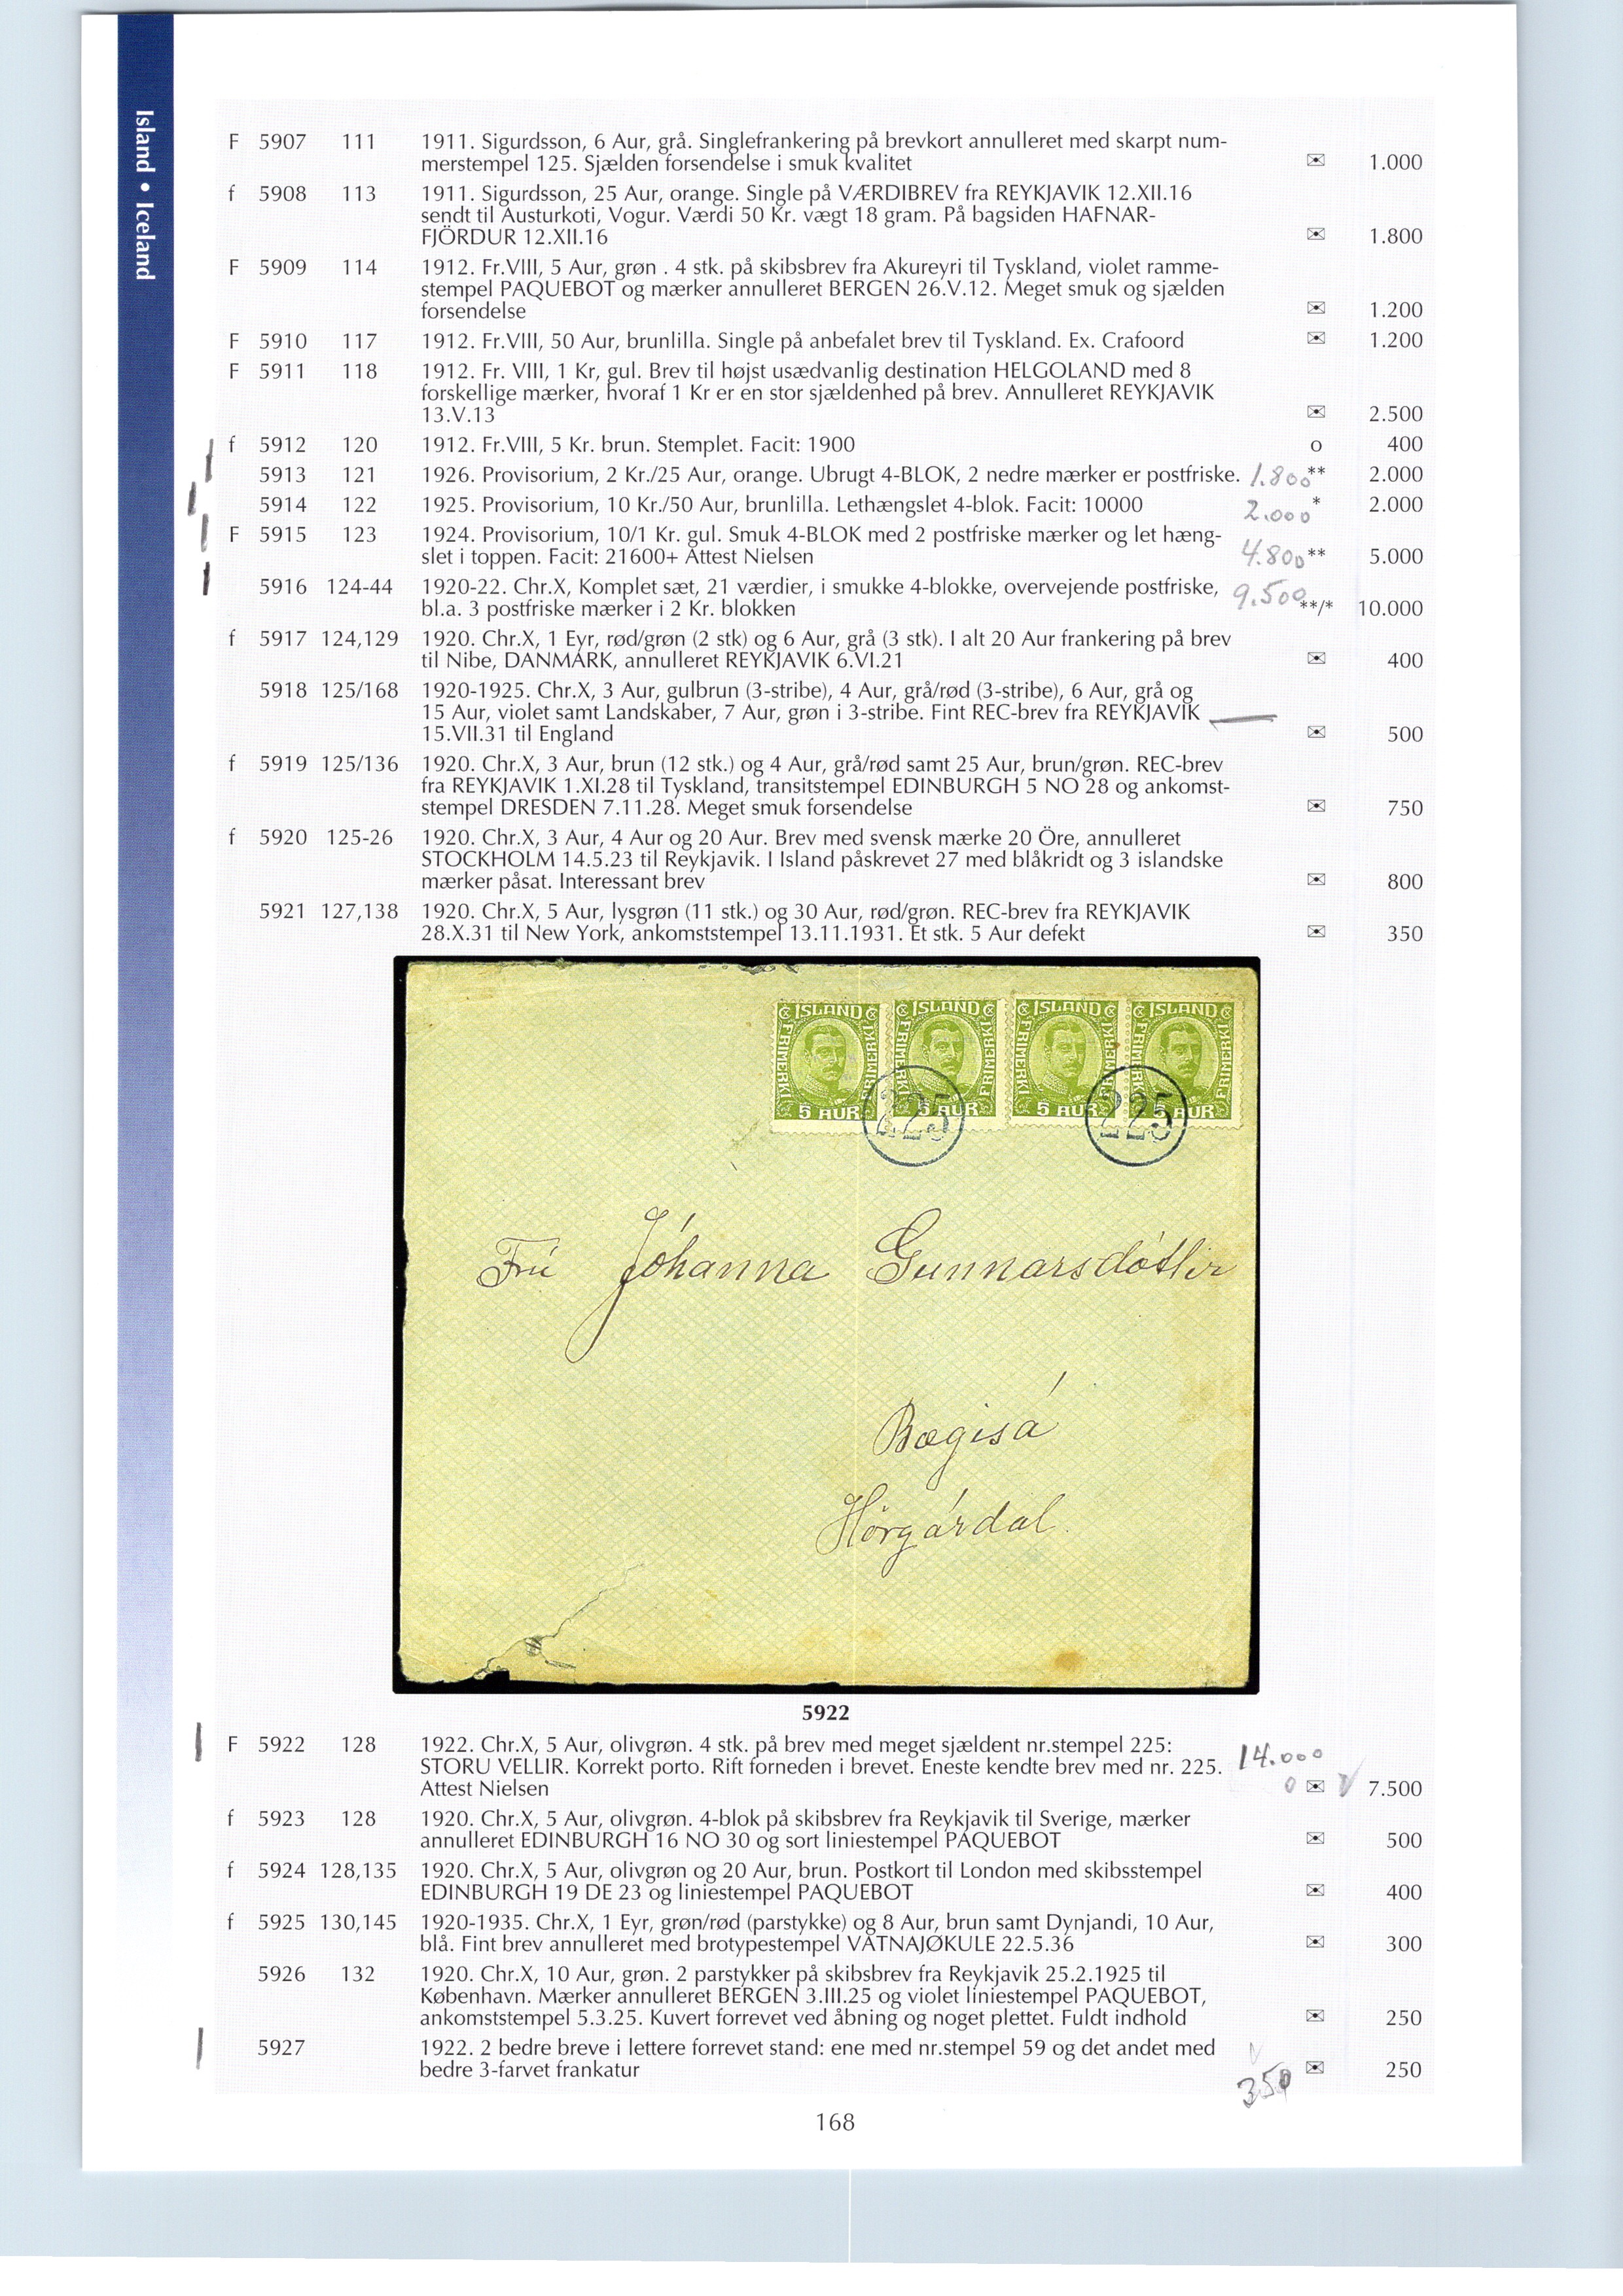 Island • Iceland
F 5907 111 1911. Sigurdsson, 6 Aur, grå. Singlefrankering på brevkort annulleret med skarpt num-
merstempel 125. Sjælden forsendelse i smuk kvalitet ✉ 1.000
f 5908 113 1911. Sigurdsson, 25 Aur, orange. Single på VÆRDIBREV fra REYKJAVIK 12.XII.16
sendt til Austurkoti, Vogur. Værdi 50 Kr. vægt 18 gram. På bagsiden HAFNAR-
FJÖRDUR 12.XII.16 ✉ 1.800
F 5909 114 1912. Fr.VIII, 5 Aur, grøn . 4 stk. på skibsbrev fra Akureyri til Tyskland, violet ramme-
stempel PAQUEBOT og mærker annulleret BERGEN 26.V.12. Meget smuk og sjælden
forsendelse ✉ 1.200
F 5910 117 1912. Fr.VIII, 50 Aur, brunlilla. Single på anbefalet brev til Tyskland. Ex. Crafoord ✉ 1.200
F 5911 118 1912. Fr. VIII, 1 Kr, gul. Brev til højst usædvanlig destination HELGOLAND med 8
forskellige mærker, hvoraf 1 Kr er en stor sjældenhed på brev. Annulleret REYKJAVIK
13.V.13 ✉ 2.500
f 5912 120 1912. Fr.VIII, 5 Kr. brun. Stemplet. Facit: 1900 o 400
5913 121 1926. Provisorium, 2 Kr./25 Aur, orange. Ubrugt 4-BLOK, 2 nedre mærker er postfriske. 1.800 ** 2.000
5914 122 1925. Provisorium, 10 Kr./50 Aur, brunlilla. Lethængslet 4-blok. Facit: 10000 2.000 * 2.000
F 5915 123 1924. Provisorium, 10/1 Kr. gul. Smuk 4-BLOK med 2 postfriske mærker og let hæng-
slet i toppen. Facit: 21600+ Attest Nielsen 4.800 ** 5.000
5916 124-44 1920-22. Chr.X, Komplet sæt, 21 værdier, i smukke 4-blokke, overvejende postfriske,
bl.a. 3 postfriske mærker i 2 Kr. blokken 9.500 **/* 10.000
f 5917 124,129 1920. Chr.X, 1 Eyr, rød/grøn (2 stk) og 6 Aur, grå (3 stk). I alt 20 Aur frankering på brev
til Nibe, DANMARK, annulleret REYKJAVIK 6.VI.21 ✉ 400
5918 125/168 1920-1925. Chr.X, 3 Aur, gulbrun (3-stribe), 4 Aur, grå/rød (3-stribe), 6 Aur, grå og
15 Aur, violet samt Landskaber, 7 Aur, grøn i 3-stribe. Fint REC-brev fra REYKJAVIK
15.VII.31 til England ✉ 500
f 5919 125/136 1920. Chr.X, 3 Aur, brun (12 stk.) og 4 Aur, grå/rød samt 25 Aur, brun/grøn. REC-brev
fra REYKJAVIK 1.XI.28 til Tyskland, transitstempel EDINBURGH 5 NO 28 og ankomst-
stempel DRESDEN 7.11.28. Meget smuk forsendelse ✉ 750
f 5920 125-26 1920. Chr.X, 3 Aur, 4 Aur og 20 Aur. Brev med svensk mærke 20 Öre, annulleret
STOCKHOLM 14.5.23 til Reykjavik. I Island påskrevet 27 med blåkridt og 3 islandske
mærker påsat. Interessant brev ✉ 800
5921 127,138 1920. Chr.X, 5 Aur, lysgrøn (11 stk.) og 30 Aur, rød/grøn. REC-brev fra REYKJAVIK
28.X.31 til New York, ankomststempel 13.11.1931. Et stk. 5 Aur defekt ✉ 350
ISLAND FRIMERKI FRIMERKI 5 AUR
ISLAND FRIMERKI FRIMERKI 5 AUR
ISLAND FRIMERKI FRIMERKI 5 AUR
ISLAND FRIMERKI FRIMERKI 5 AUR
225 225
Frú Jóhanna Gunnarsdóttir
Bægisá
Hörgárdal.
5922
F 5922 128 1922. Chr.X, 5 Aur, olivgrøn. 4 stk. på brev med meget sjældent nr.stempel 225:
STORU VELLIR. Korrekt porto. Rift forneden i brevet. Eneste kendte brev med nr. 225. 14.000
Attest Nielsen ✉ 7.500
f 5923 128 1920. Chr.X, 5 Aur, olivgrøn. 4-blok på skibsbrev fra Reykjavik til Sverige, mærker
annulleret EDINBURGH 16 NO 30 og sort liniestempel PAQUEBOT ✉ 500
f 5924 128,135 1920. Chr.X, 5 Aur, olivgrøn og 20 Aur, brun. Postkort til London med skibsstempel
EDINBURGH 19 DE 23 og liniestempel PAQUEBOT ✉ 400
f 5925 130,145 1920-1935. Chr.X, 1 Eyr, grøn/rød (parstykke) og 8 Aur, brun samt Dynjandi, 10 Aur,
blå. Fint brev annulleret med brotypestempel VATNAJØKULE 22.5.36 ✉ 300
5926 132 1920. Chr.X, 10 Aur, grøn. 2 parstykker på skibsbrev fra Reykjavik 25.2.1925 til
København. Mærker annulleret BERGEN 3.III.25 og violet liniestempel PAQUEBOT,
ankomststempel 5.3.25. Kuvert forrevet ved åbning og noget plettet. Fuldt indhold ✉ 250
5927 1922. 2 bedre breve i lettere forrevet stand: ene med nr.stempel 59 og det andet med
bedre 3-farvet frankatur 350 ✉ 250
168